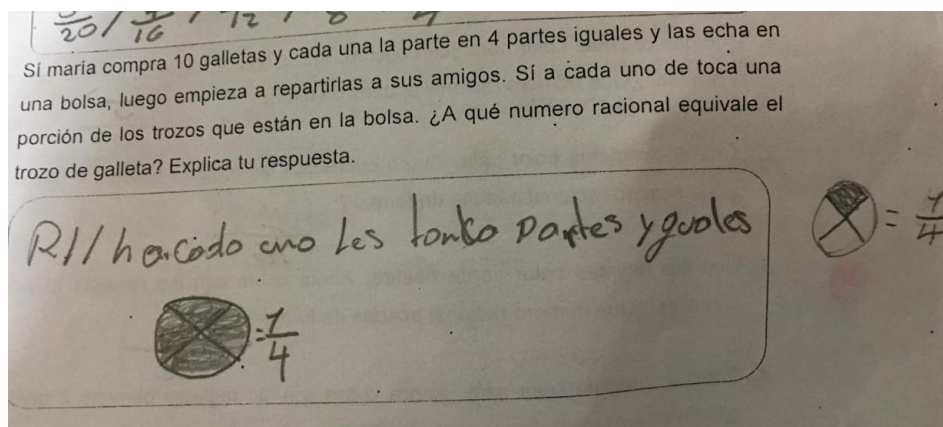 20 / 16 / 12 / 8 4
Sí maria compra 10 galletas y cada una la parte en 4 partes iguales y las echa en
una bolsa, luego empieza a repartirlas a sus amigos. Sí a cada uno de toca una
porción de los trozos que están en la bolsa. ¿A qué numero racional equivale el
trozo de galleta? Explica tu respuesta.
R// ha cado uno Les tonko partes yguoles
= 1/4
= 1/4